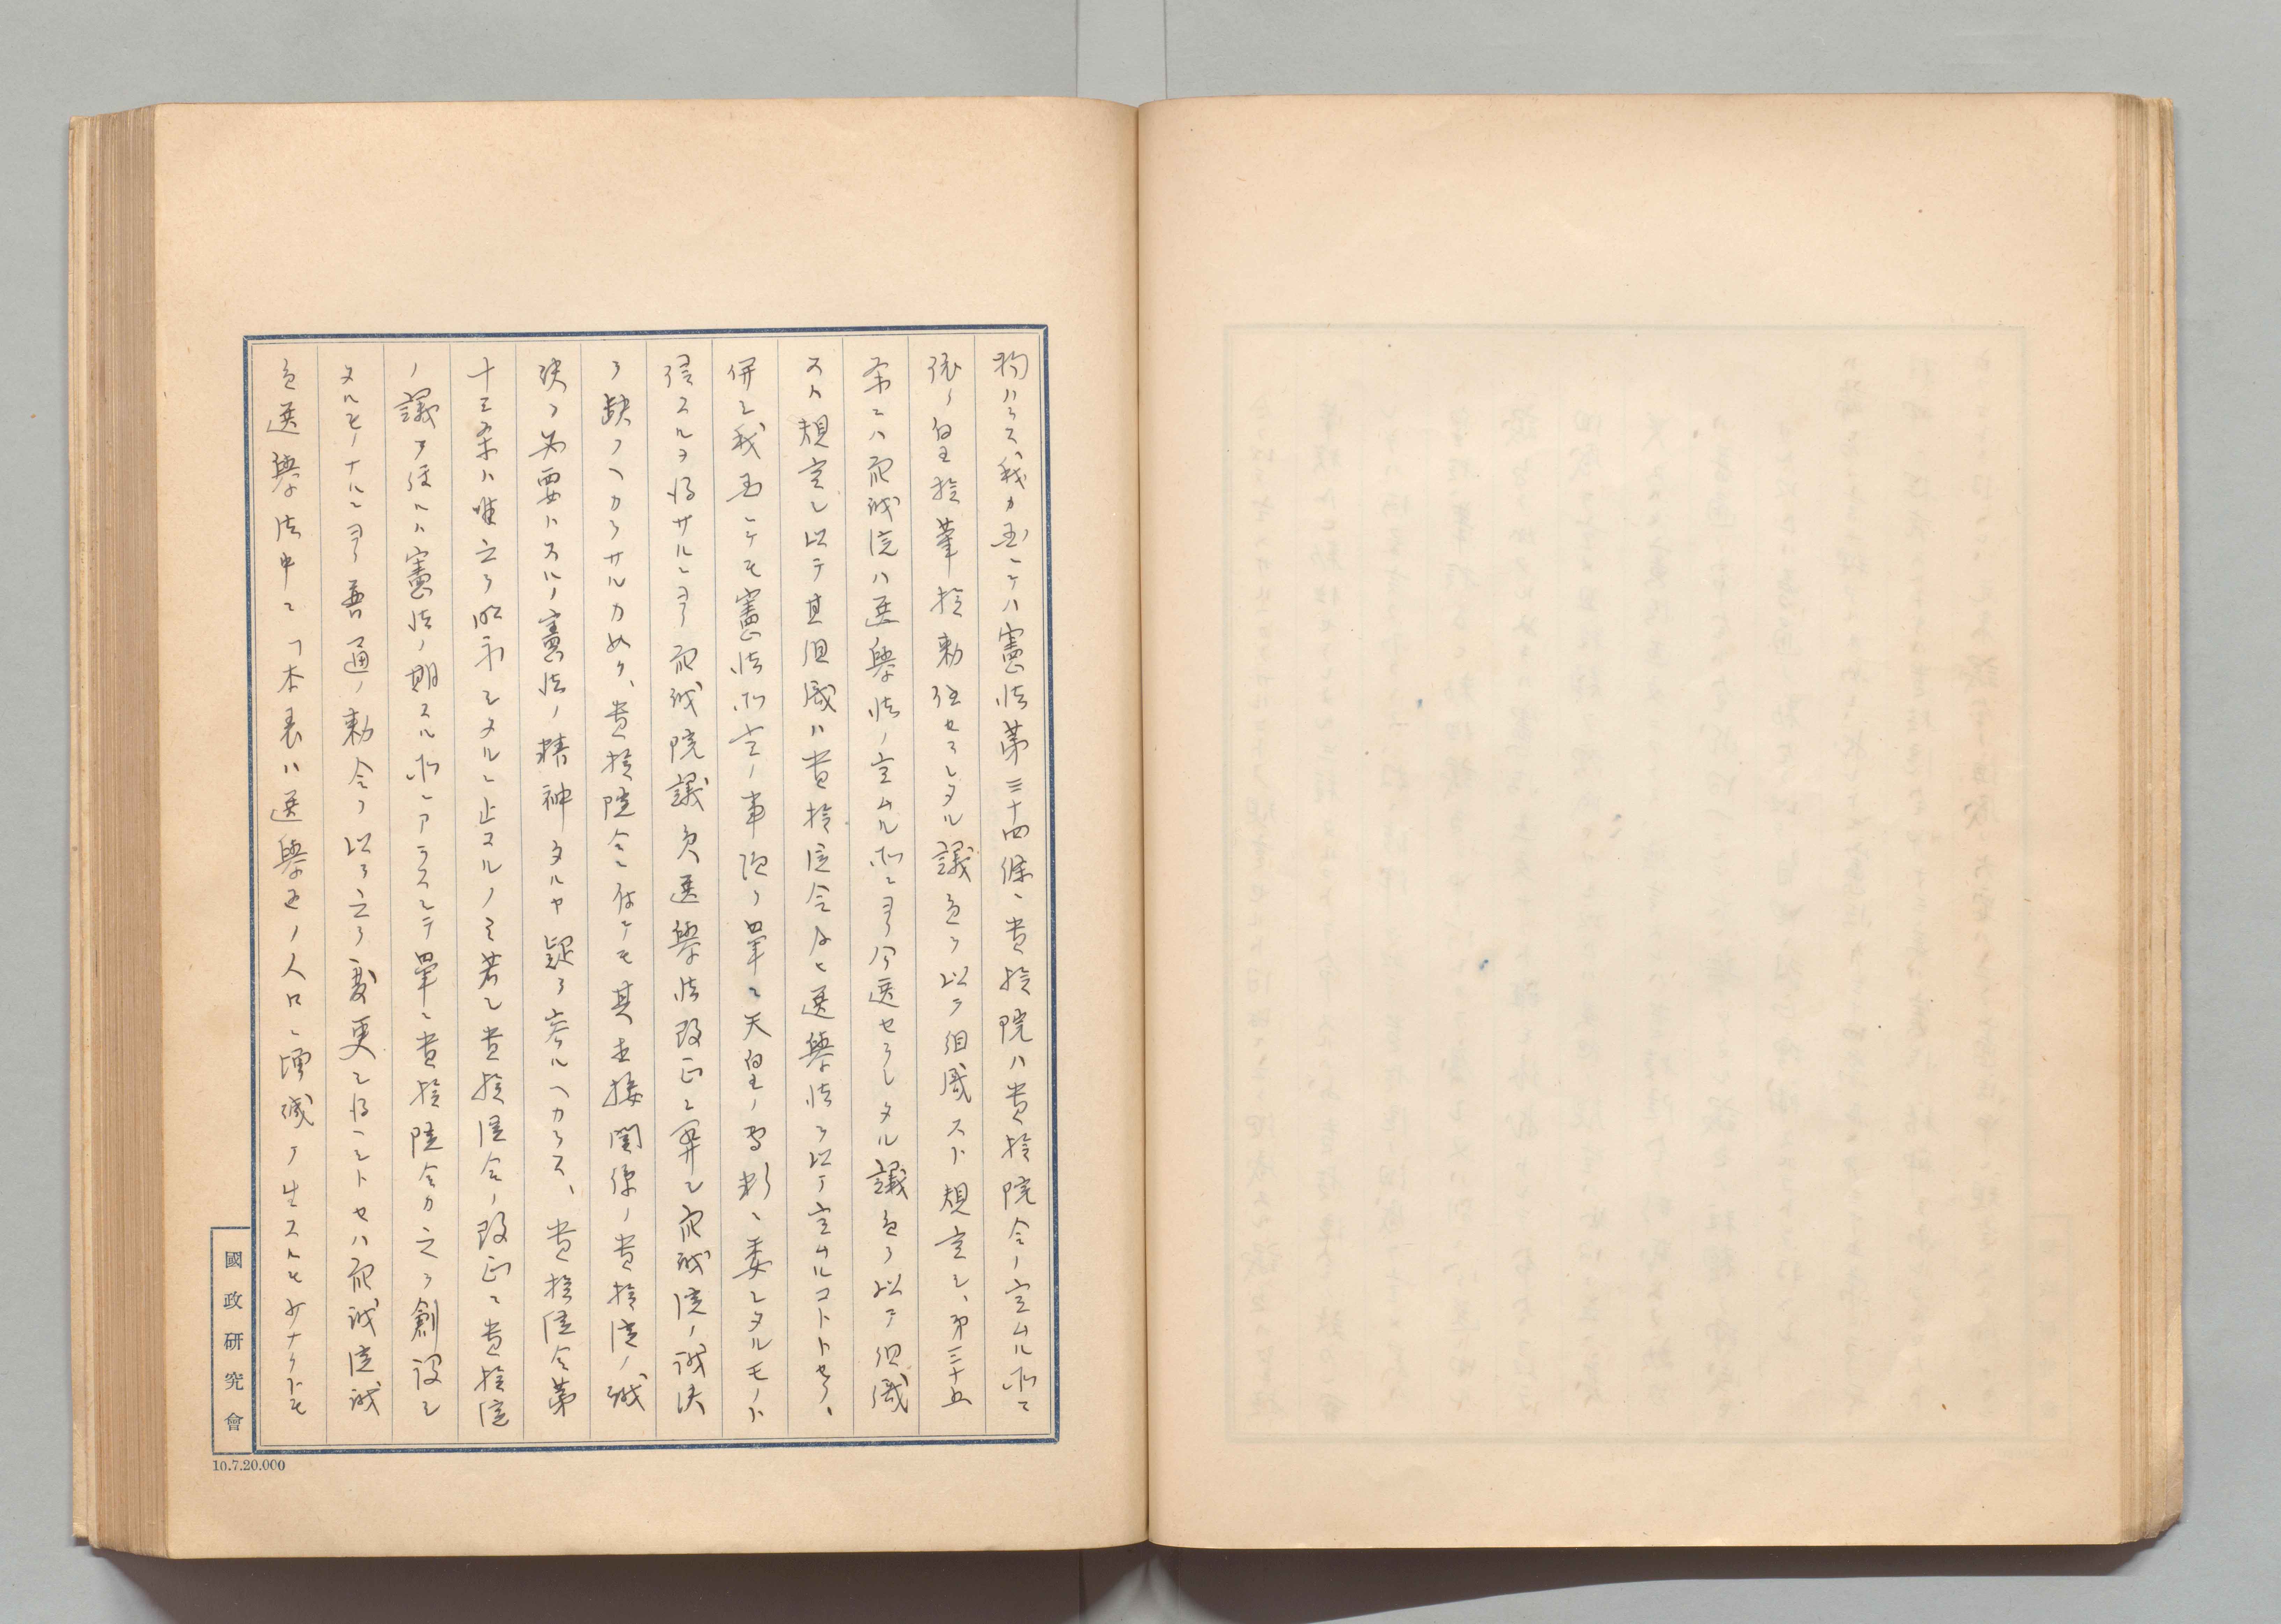 拘ハラス、我カ国ニテハ憲法第三十四條ニ貴族院ハ貴族院令ノ定ムル所ニ
依リ皇族華族勅任セラレタル議員ヲ以テ組織スト規定シ、第三十五
条ニハ衆議院ハ選挙法ノ定ムル所ニヨリ公選セラレタル議員ヲ以テ組織
スト規定シ以テ其組織ハ貴族院令及ヒ選挙法ヲ以テ定ムルコトトセリ、
併シ我国ニテモ憲法所定ノ事項ヲ単ニ天皇ノ専断ニ委シタルモノト
信スルヲ得サルニヨリ衆議院議員選挙法改正ニ関シ衆議院ノ議決
ヲ缺クヘカラサルカ如ク、貴族院令ニ付テモ其直接関係ノ貴族院ノ議
決ヲ必要トスルハ憲法ノ精神タルヤ疑ヲ容ルヘカラス、貴族院令第
十三条ハ唯之ヲ明示シタルニ止マルノミ若シ貴族院令ノ改正ニ貴族院
ノ議ヲ経ルハ憲法ノ期スル所ニアラスシテ単ニ貴族院令カ之ヲ創設シ
タルモノナルニヨリ普通ノ勅令ヲ以テ之ヲ変更シ得ヘシトセハ衆議院議
員選挙法中ニ「本表ハ選挙区ノ人口ニ増減ヲ生スルモ少ナクトモ
國政研究會
10.7.20.000